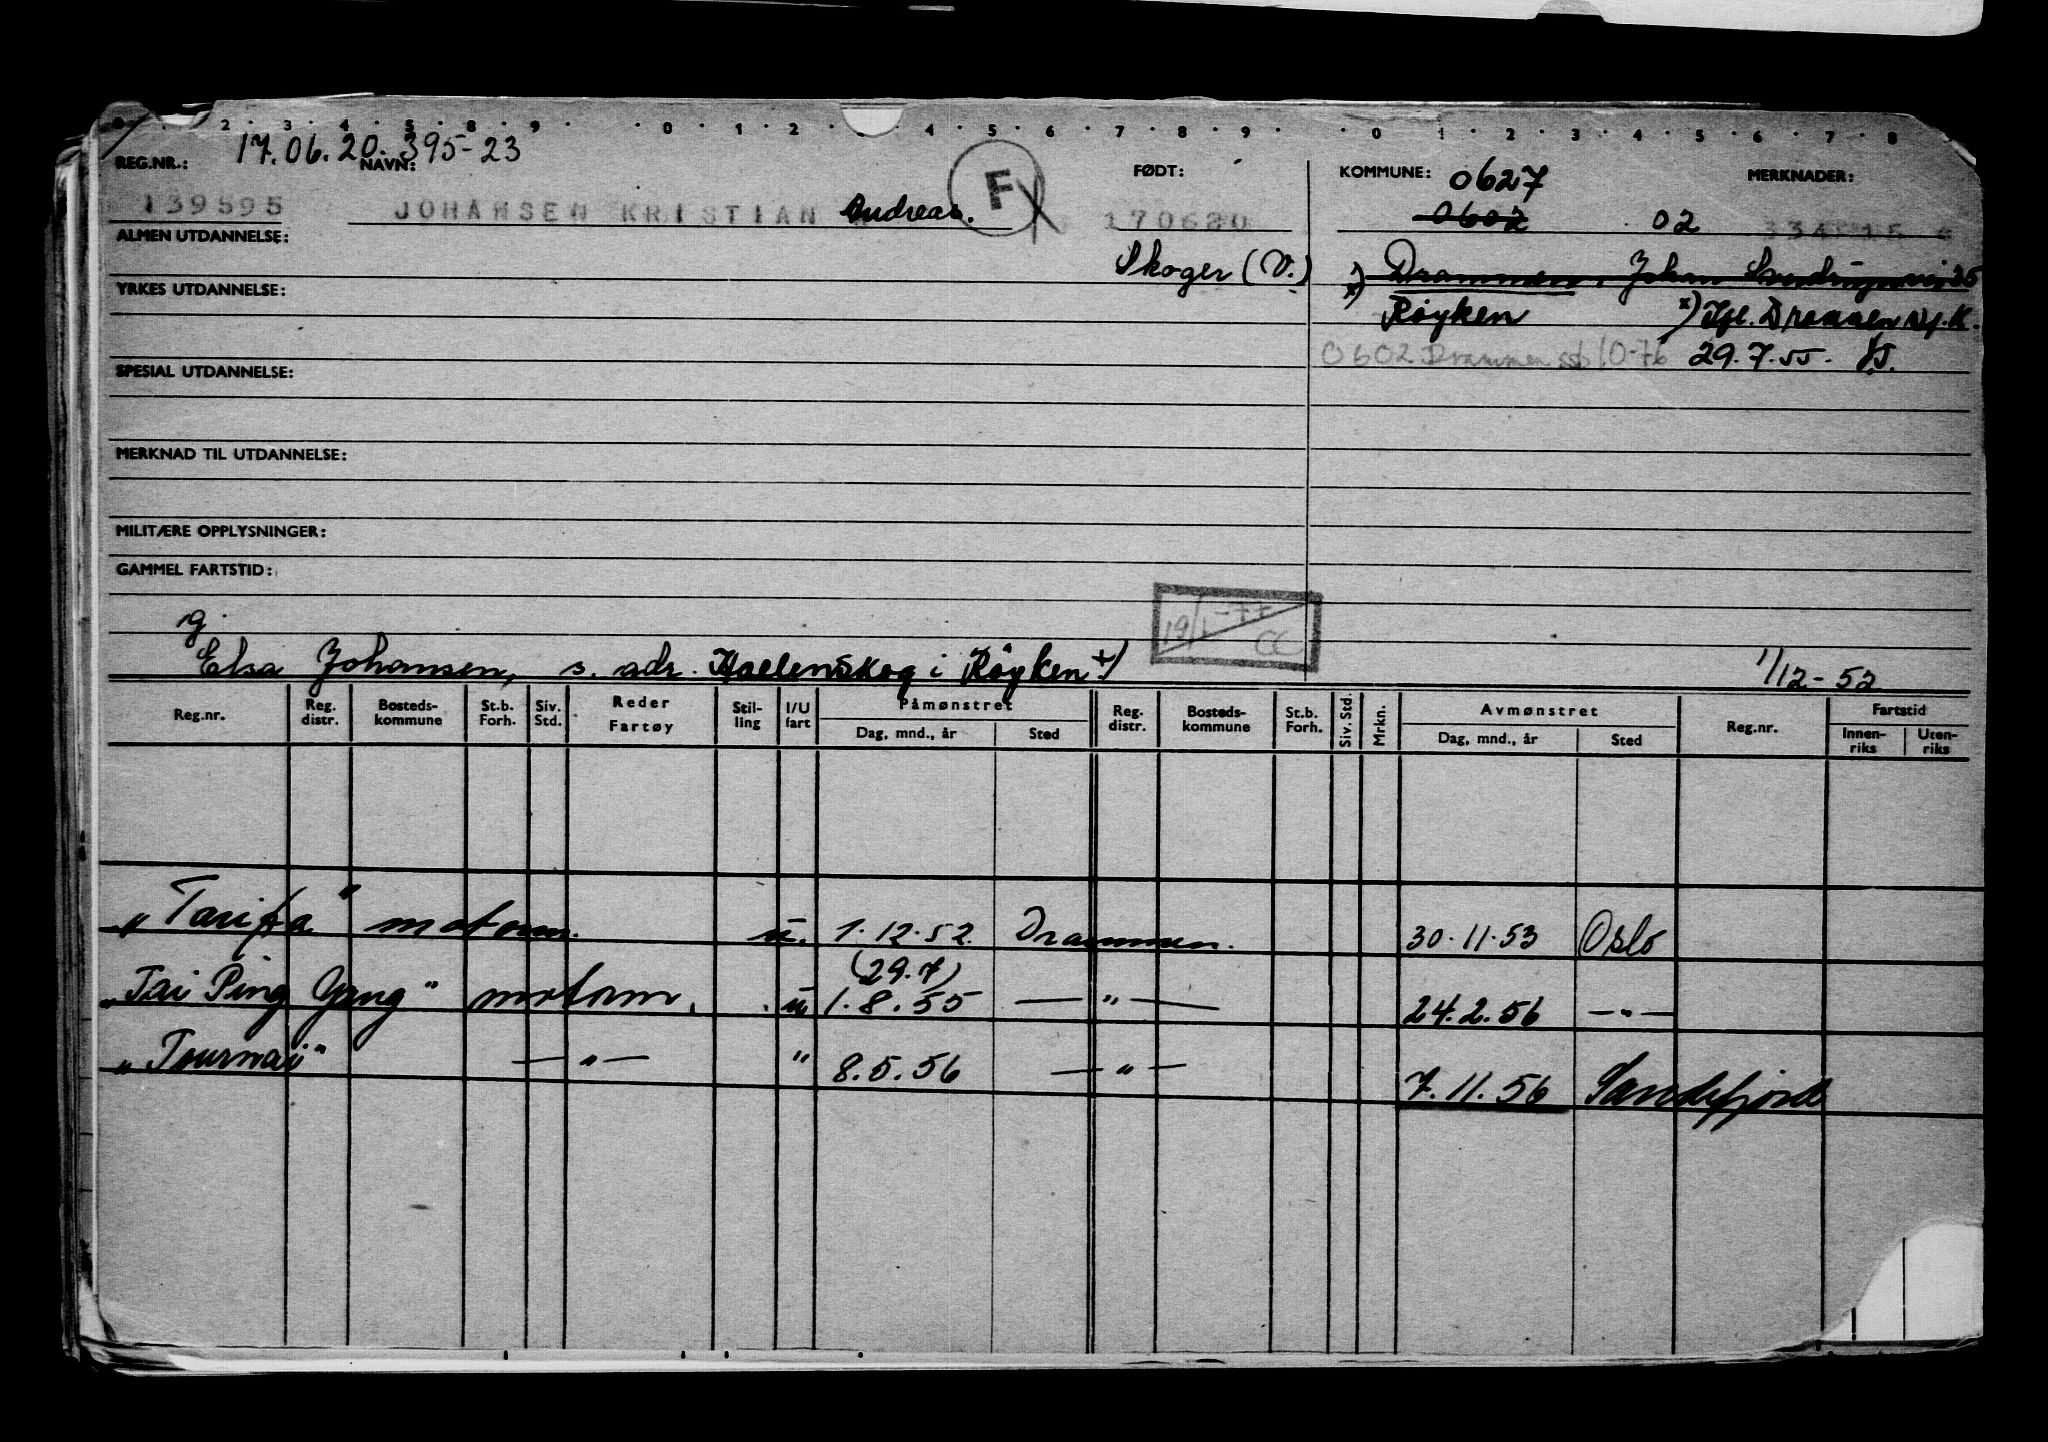 0 2 3 4 5 8 9 0 1 2 4 5 6 7 8 9 0 1 2 3 4 5 6 7 8
17.06.20.395-23
REG.NR.: NAVN: FØDT: KOMMUNE: 0627 MERKNADER:
139595 JOHANSEN KRISTIAN Andreas. F 170620 0602 02
ALMEN UTDANNELSE:
Skoger (V.) x) Drammen, Johan
YRKES UTDANNELSE:
Røyken x) Drammen
0602 Drammen 10-76 29.7.55.
SPESIAL UTDANNELSE:
MERKNAD TIL UTDANNELSE:
MILITÆRE OPPLYSNINGER:
GAMMEL FARTSTID:
19/1-77
g.
Elsa Johansen, s. adr. Hallenskog i Røyken 1/12-52
Reg.nr. Reg. distr. Bosteds-kommune St.b. Forh. Siv. Std. Reder Fartøy Stil-ling I/U fart Påmønstret Dag, mnd., år Sted Reg. distr. Bosteds-kommune St.b. Forh. Siv. Std. Mrkn. Avmønstret Dag, mnd., år Sted Reg.nr. Fartstid Innen-riks Uten-riks
"Tarifa" motorm. u. 1.12.52 Drammen. 30.11.53 Oslo
(29.7)
"Tai Ping Yang" motorm. u 1.8.55 — " — 24.2.56 — " —
"Tournai" — " — " 8.5.56 — " — 7.11.56 Sandefjord